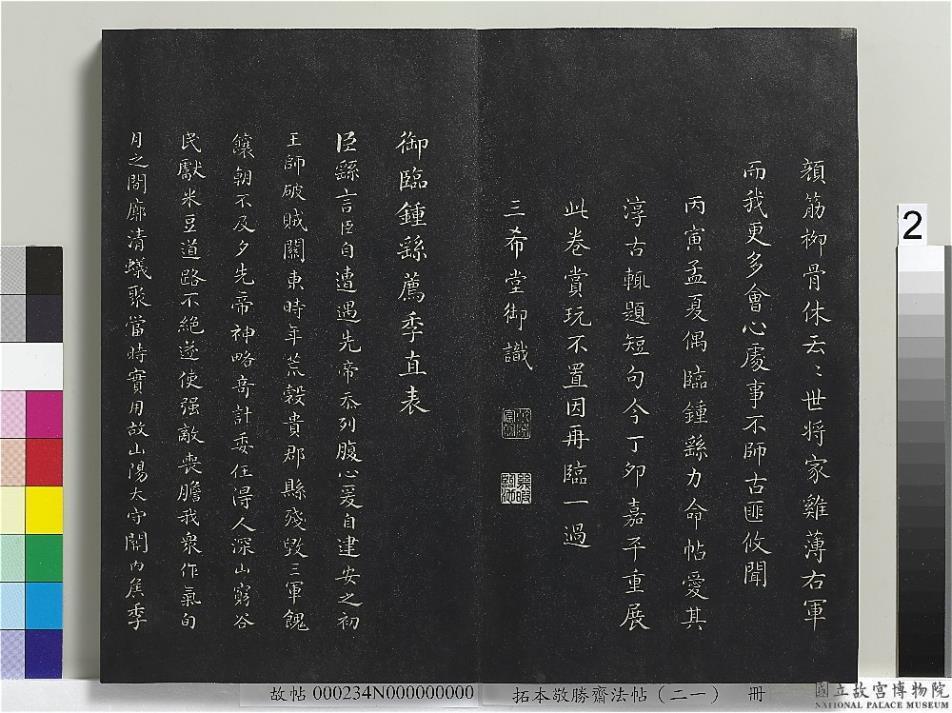 顏筋栁骨休云〻世将家雞薄右軍
而我更多會心處事不師古匪攸聞
丙寅孟夏偶臨鍾繇力命帖愛其
淳古輒題短句今丁卯嘉平重展
此卷賞玩不置因再臨一過
三希堂御識
御臨鍾繇薦季直表
臣繇言臣自遭遇先帝忝列腹心爰自建安之初
王師破賊關東時年荒穀貴郡縣殘毀三軍餽
饟朝不及夕先帝神略奇計委任得人深山窮谷
民獻米豆道路不絕遂使强敵喪膽我衆作氣旬
月之間廓清蟻聚當時實用故山陽太守關內矦季
2
故帖 000234N000000000
拓本敬勝齋法帖（二一） 冊
國立故宮博物院
NATIONAL PALACE MUSEUM